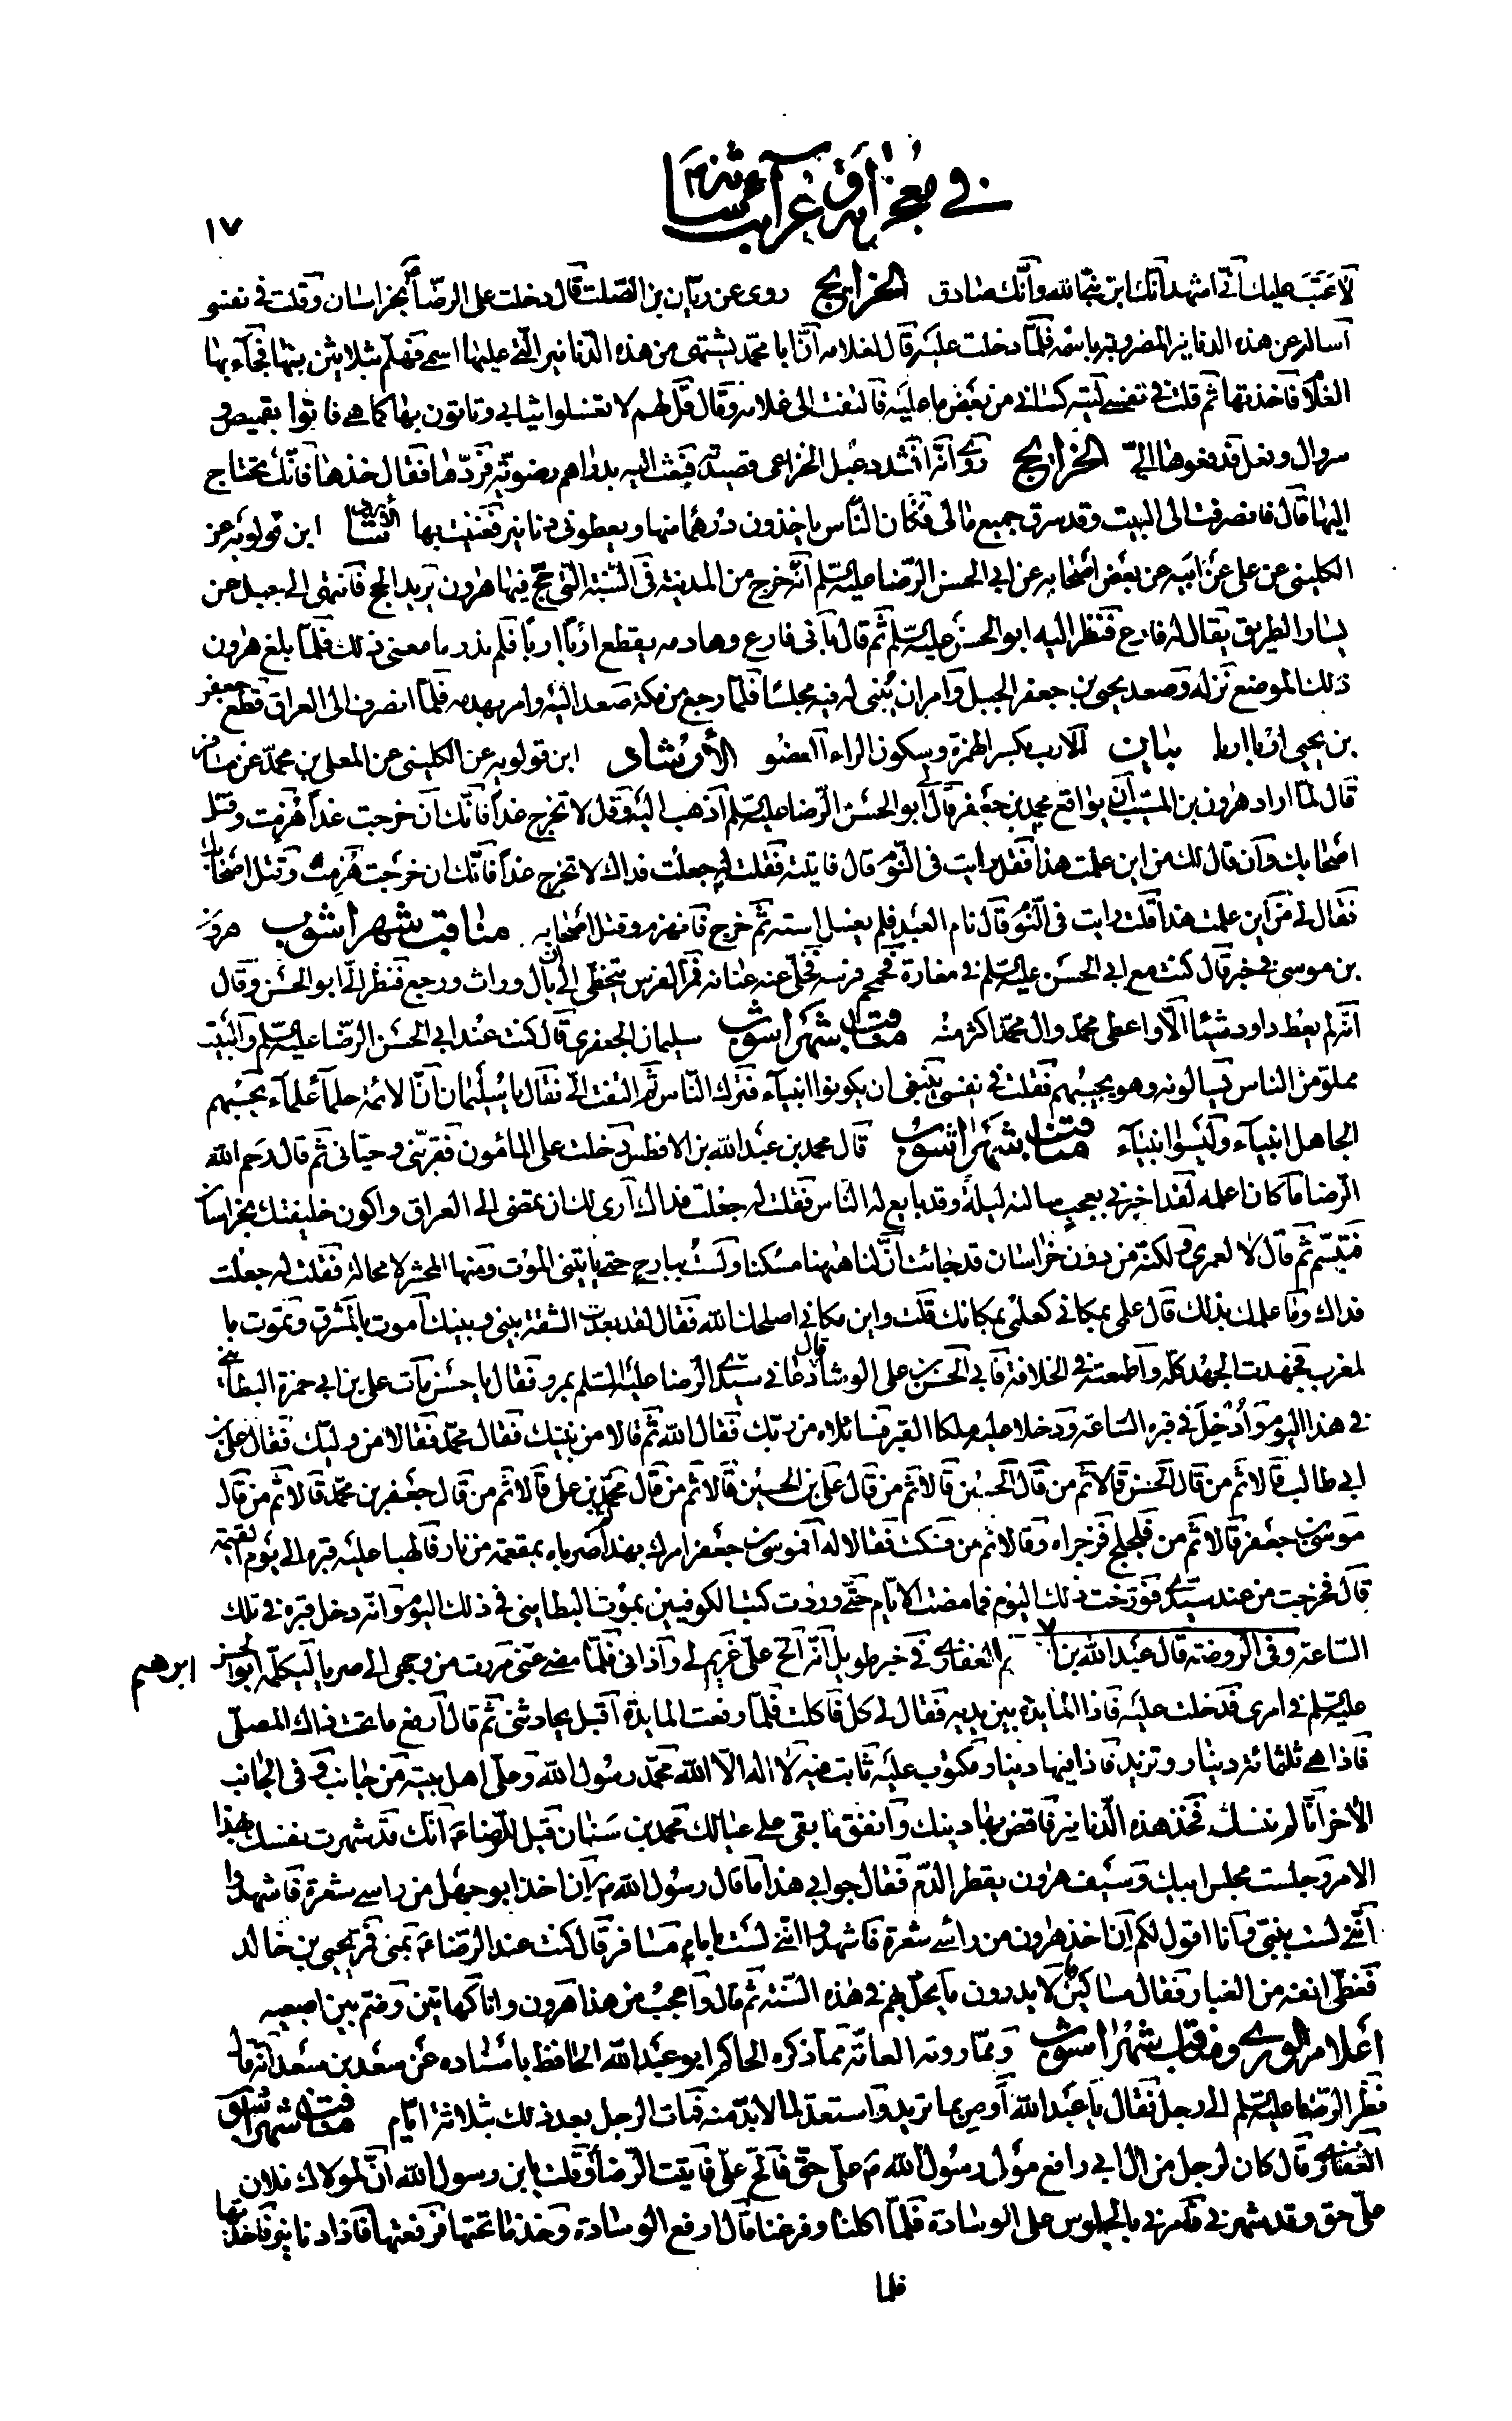 في معجزاته وغرائب شأنه
١٧
لا عتب عليك اني اشهد انك ابن نبي الله وانك صادق الخرايج روى عن ريان بن الصلت قال دخلت على الرضا ع بخراسان وقلت في نفسي
اساله عن هذه الدنانير المضروبة باسمه فلما دخلت عليه قال لغلامه ان ابا محمد يشتهي من هذه الدنانير التي عليها اسمي فهلم بثلاثين منها فجاء بها
الغلام فاخذتها ثم قلت في نفسي ليته كساني من بعض ما عليه فالتفت الى غلامه وقال قل لهم لا تغسلوا ثيابي وتاتون بها كما هي فاتوا بقميص و
سروال ونعل فدفعوها الي الخرايج روي انه انشد دعبل الخزاعي قصيدته فبعث اليه بدراهم رضوية فردها فقال خذها فانك تحتاج
اليها قال فانصرفت الى البيت وقد سرق جميع مالي فكان الناس ياخذون درهما منها ويعطوني دنانير فغنيت بها الارشاد ابن قولويه عن
الكليني عن علي عن ابيه عن بعض اصحابه عن ابي الحسن الرضا عليه السلم انه خرج من المدينة في السنة التي حج فيها هرون يريد الحج فانتهى الى جبل عن
يسار الطريق يقال له فارع فنظر اليه ابو الحسن عليه السلم ثم قال باني فارع وهادمه يقطع اربا اربا فلم ندر ما معنى ذلك فلما بلغ هرون
ذلك الموضع نزله وصعد يحيى بن جعفر الجبل وامر ان يبنى له فيه مجلسا فلما رجع من مكة صعد اليه وامر بهدمه فلما انصرف الى العراق قطع جعفر
بن يحيى اربا اربا بيان الارب بكسر الهمزة وسكون الراء العضو الارشاد ابن قولويه عن الكليني عن المعلى بن محمد عن مسافر
قال لما اراد هرون بن المسيب ان يواقع محمد بن جعفر قال لي ابو الحسن الرضا عليه السلم اذهب اليه وقل لا تخرج غدا فانك ان خرجت غدا هزمت وقتل
اصحابك وان قال لك من اين علمت هذا فقل رايت في النوم قال فاتيته فقلت له جعلت فداك لا تخرج غدا فانك ان خرجت هزمت وقتل اصحابك
فقال لي من اين علمت هذا قلت رايت في النوم قال نام العبد فلم يغسل استه ثم خرج فانهزم وقتل اصحابه مناقب شهراشوب هرون
بن موسى في خبر قال كنت مع ابي الحسن عليه السلم في مفازة فحمحم فرسه فخلى عنه عنانه فمر الفرس يتخطى الى ان بال وراث ورجع فنظر الي ابو الحسن وقال
انه لم يعط داود شيئا الا واعطى محمد وال محمد اكثر منه مناقب شهراشوب سليمان الجعفري قال كنت عند ابي الحسن الرضا عليه السلم والبيت
مملو من الناس يسالونه وهو يجيبهم فقلت في نفسي ينبغي ان يكونوا انبياء فترك الناس ثم التفت الي فقال يا سليمان ان الائمة حلماء علماء يحسبهم
الجاهل انبياء وليسوا انبياء مناقب شهراشوب قال محمد بن عبد الله بن الافطس دخلت على المامون فقربني وحياني ثم قال رحم الله
الرضا ما كان اعلمه لقد اخبرني بعجب سالته ليلة وقد بايع له الناس فقلت له جعلت فداك ارى لك ان تمضي الى العراق واكون خليفتك بخراسان
فتبسم ثم قال لا لعمري ولكنه من دون خراسان قد جائت ان لنا ههنا مسكنا ولست ببارح حتى ياتيني الموت ومنها المحشر لا محالة فقلت له جعلت
فداك وما علمك بذلك قال علمي بمكاني كعلمي بمكانك قلت واين مكاني اصلحك الله فقال لقد بعدت الشقة بيني وبينك اموت بالمشرق وتموت با
لمغرب فجهدت الجهد كله واطمعته في الخلافة فابى الحسن بن علي الوشا قال دعاني سيدي الرضا عليه السلم بمرو فقال يا حسن مات علي بن ابي حمزة البطائني
في هذا اليوم وادخل في قبره الساعة ودخلا عليه ملكا القبر فسائلاه من ربك فقال الله ثم قالا من نبيك فقال محمد فقالا من وليك فقال علي بن
ابي طالب قالا ثم من قال الحسن قالا ثم من قال الحسين قالا ثم من قال علي بن الحسين قالا ثم من قال محمد بن علي قالا ثم من قال جعفر بن محمد قالا ثم من قال
موسى بن جعفر قالا ثم من فلجلج فزجراه وقالا ثم من فسكت فقالا له افموسى بن جعفر امرك بهذا ثم ضرباه بمقمعة من نار فالهبا عليه قبره الى يوم القيمة
قال فخرجت من عند سيدي فورخت ذلك اليوم فما مضت الايام حتى وردت كتب الكوفيين بموت البطايني في ذلك اليوم وانه دخل قبره في تلك
الساعة وفي الروضة قال عبد الله بن ابرهيم الغفاري في خبر طويل انه الح علي غريم لي واذاني فلما مضى عني مررت من وجهي الى صريا ليكلمه ابو الحسن
عليه السلم في امري فدخلت عليه فاذا المايدة بين يديه فقال لي كل فاكلت فلما رفعت المايدة اقبل يحادثني ثم قال ارفع ما تحت ذاك المصلى
فاذا هي ثلثمائة دينار وتزيد فاذا فيها دينار مكتوب عليه ثابت فيه لا اله الا الله محمد رسول الله وعلى اهل بيته من جانب وفي الجانب
الاخر انا لم ننسك فخذ هذه الدنانير فاقض بها دينك وانفق ما بقي على عيالك محمد بن سنان قيل للرضا ع انك قد شهرت نفسك بهذا
الامر وجلست مجلس ابيك وسيف هرون يقطر الدم فقال جوابي هذا ما قال رسول الله ص ان اخذ ابو جهل من راسي شعرة فاشهدوا
انني لست بنبي وانا اقول لكم ان اخذ هرون من راسي شعرة فاشهدوا انني لست بامام مسافر قال كنت عند الرضا ع بمنى فمر يحيى بن خالد
فغطى انفه من الغبار فقال مساكين لا يدرون ما يحل بهم في هذه السنة ثم قال واعجب من هذا هرون وانا كهاتين وضم بين اصبعيه
اعلام الورى ومناقب شهراشوب ومما روته العامة مما ذكره الحاكم ابو عبد الله الحافظ باسناده عن سعد بن سعد انه قال
نظر الرضا عليه السلم الى رجل فقال يا عبد الله اوص بما تريد واستعد لما لا بد منه فمات الرجل بعد ذلك بثلاثة ايام مناقب شهراشوب
الغفاري قال كان لرجل من ال ابي رافع مولى رسول الله ص علي حق فالح علي فاتيت الرضا وقلت يا بن رسول الله ان لمولاك فلان
علي حق وقد شهرني فامرني بالجلوس على الوسادة فلما اكلنا وفرغنا قال ارفع الوسادة وخذ ما تحتها فرفعتها فاذا دنانير فاخذتها
فلما